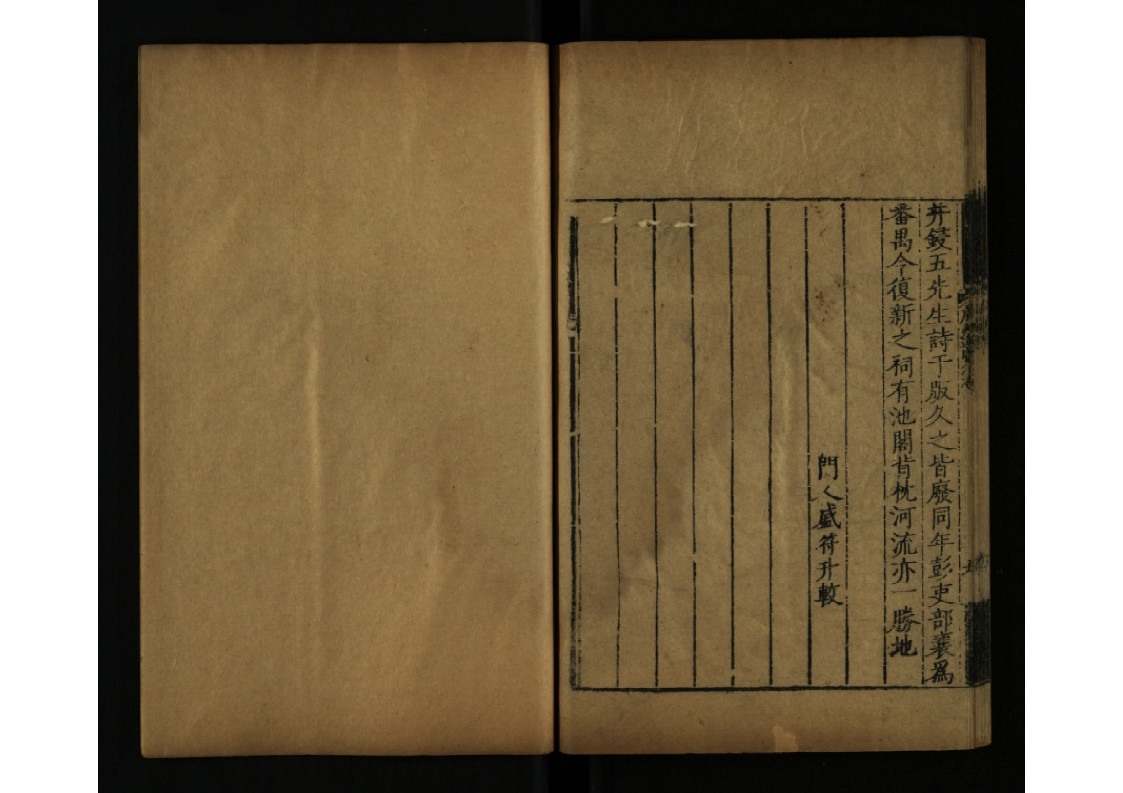 并鋟五先生詩于版久之皆廢同年彭吏部襄爲
番禺令復新之祠有池閣背枕河流亦一勝地
門人盛符升較